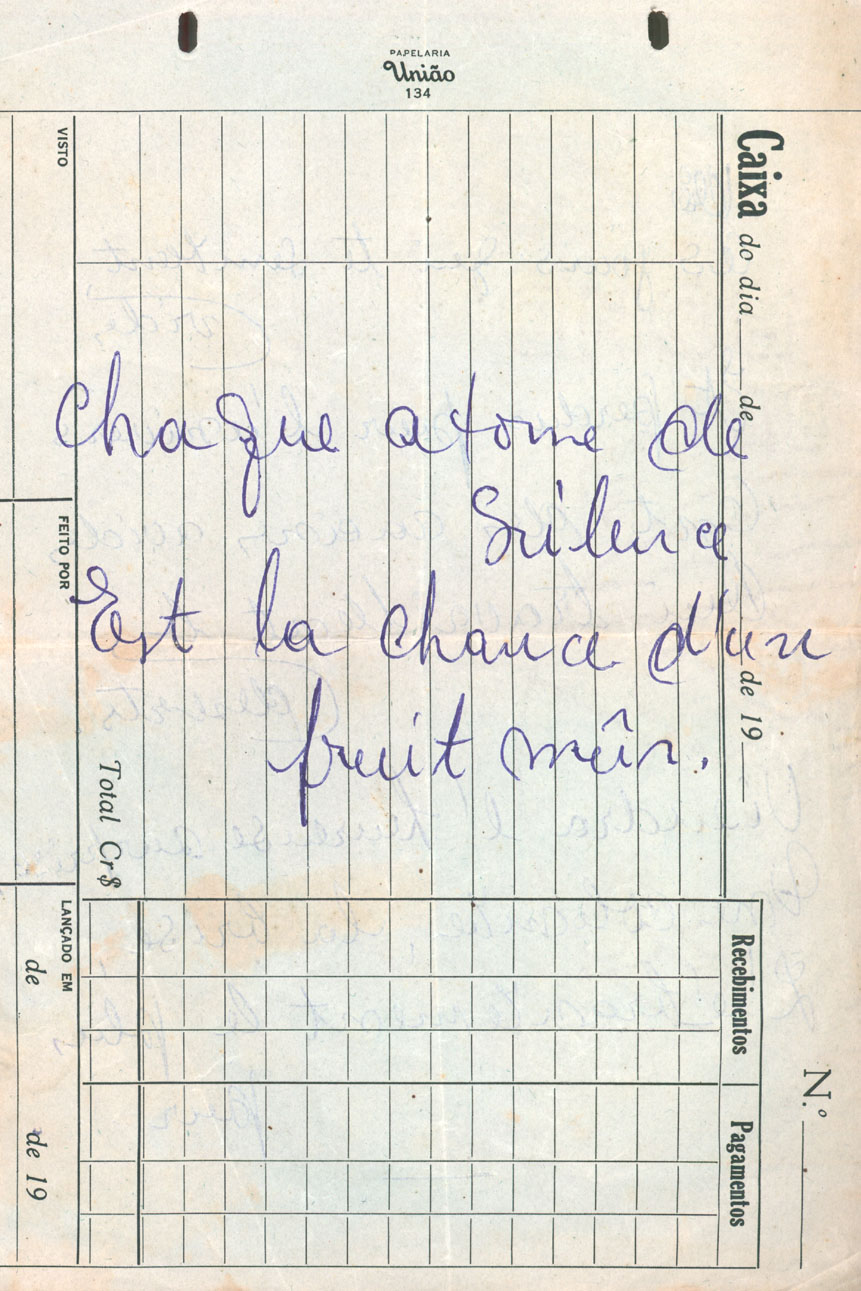 PAPELARIA
União
134
Caixa do dia de de 19
N.º
VISTO
FEITO POR
LANÇADO EM
de de 19
Total Cr$
Recebimentos
Pagamentos
Chaque atome de
Silence
Est la chance d'un
fruit mûr.